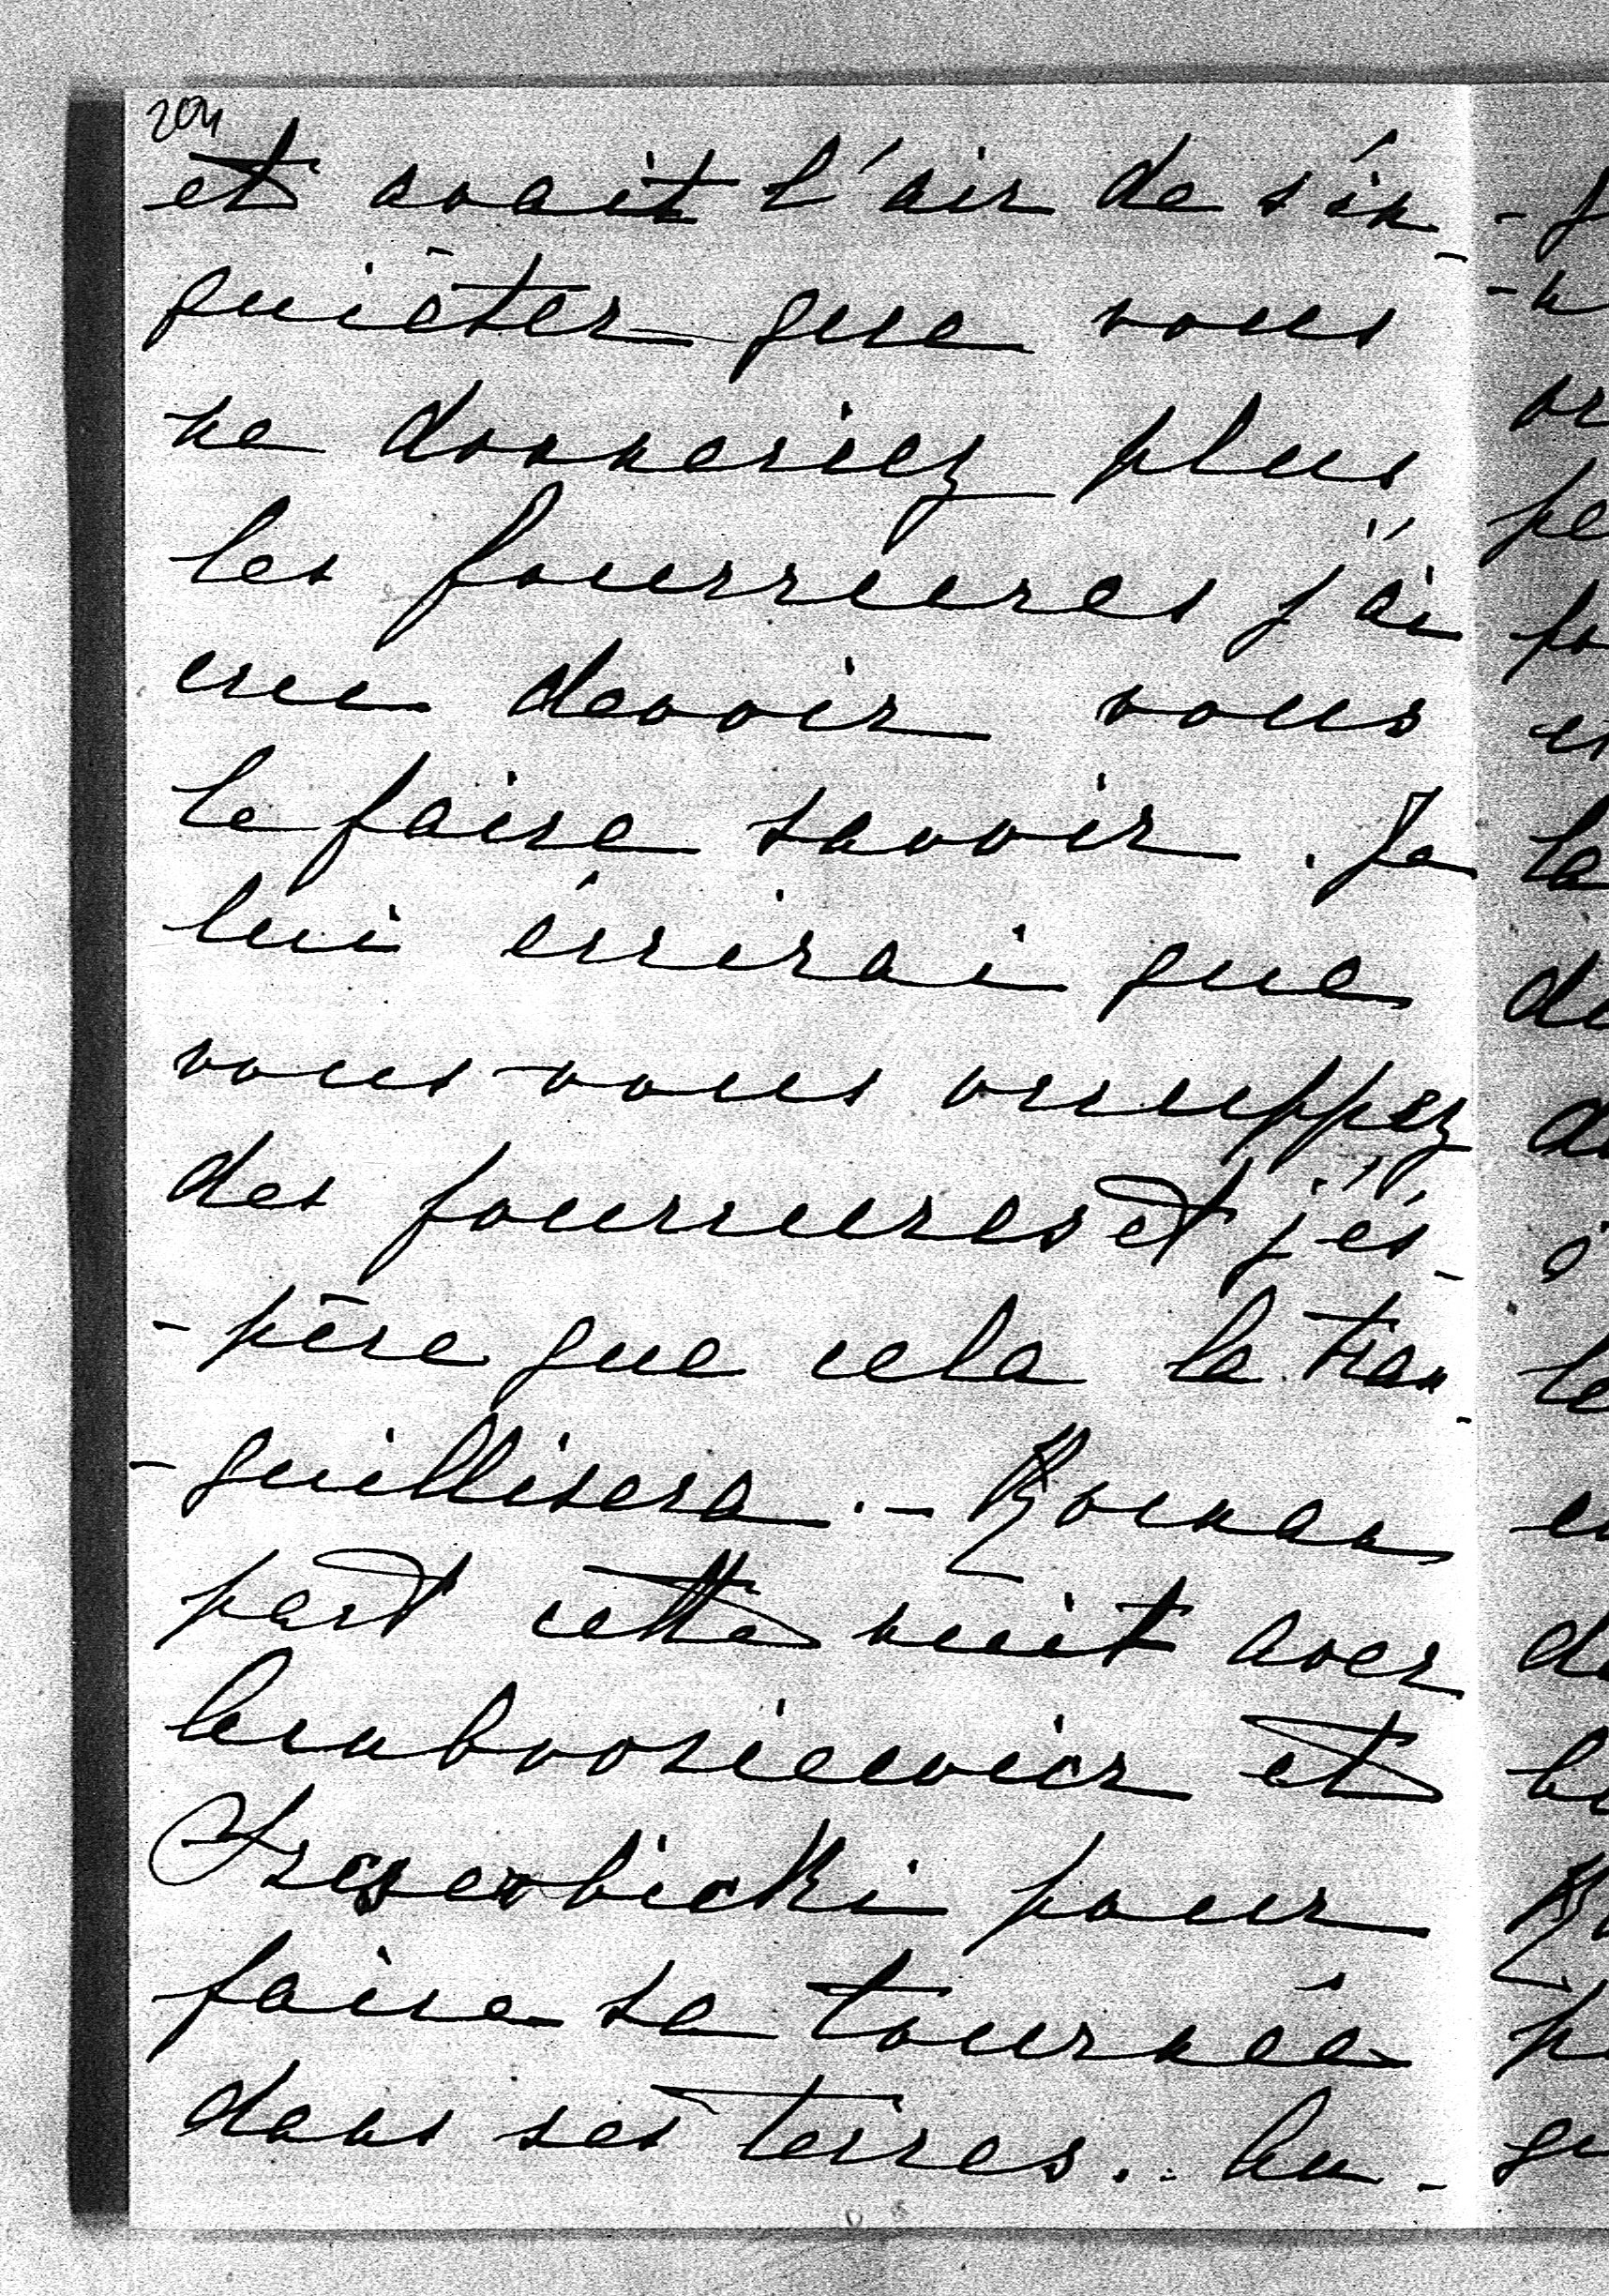 204
et avait l'air de s'in-
quiéter que vous
ne donneriez plus
les fourrures j'ai
cru devoir vous
le faire savoir. Je
lui écrirai que
vous vous occuppez
des fourrures et j'és-
-père que cela la tran-
-quillisera.- Roman
part cette nuit avec
et
pour
faire sa tournée
dans ses terres..